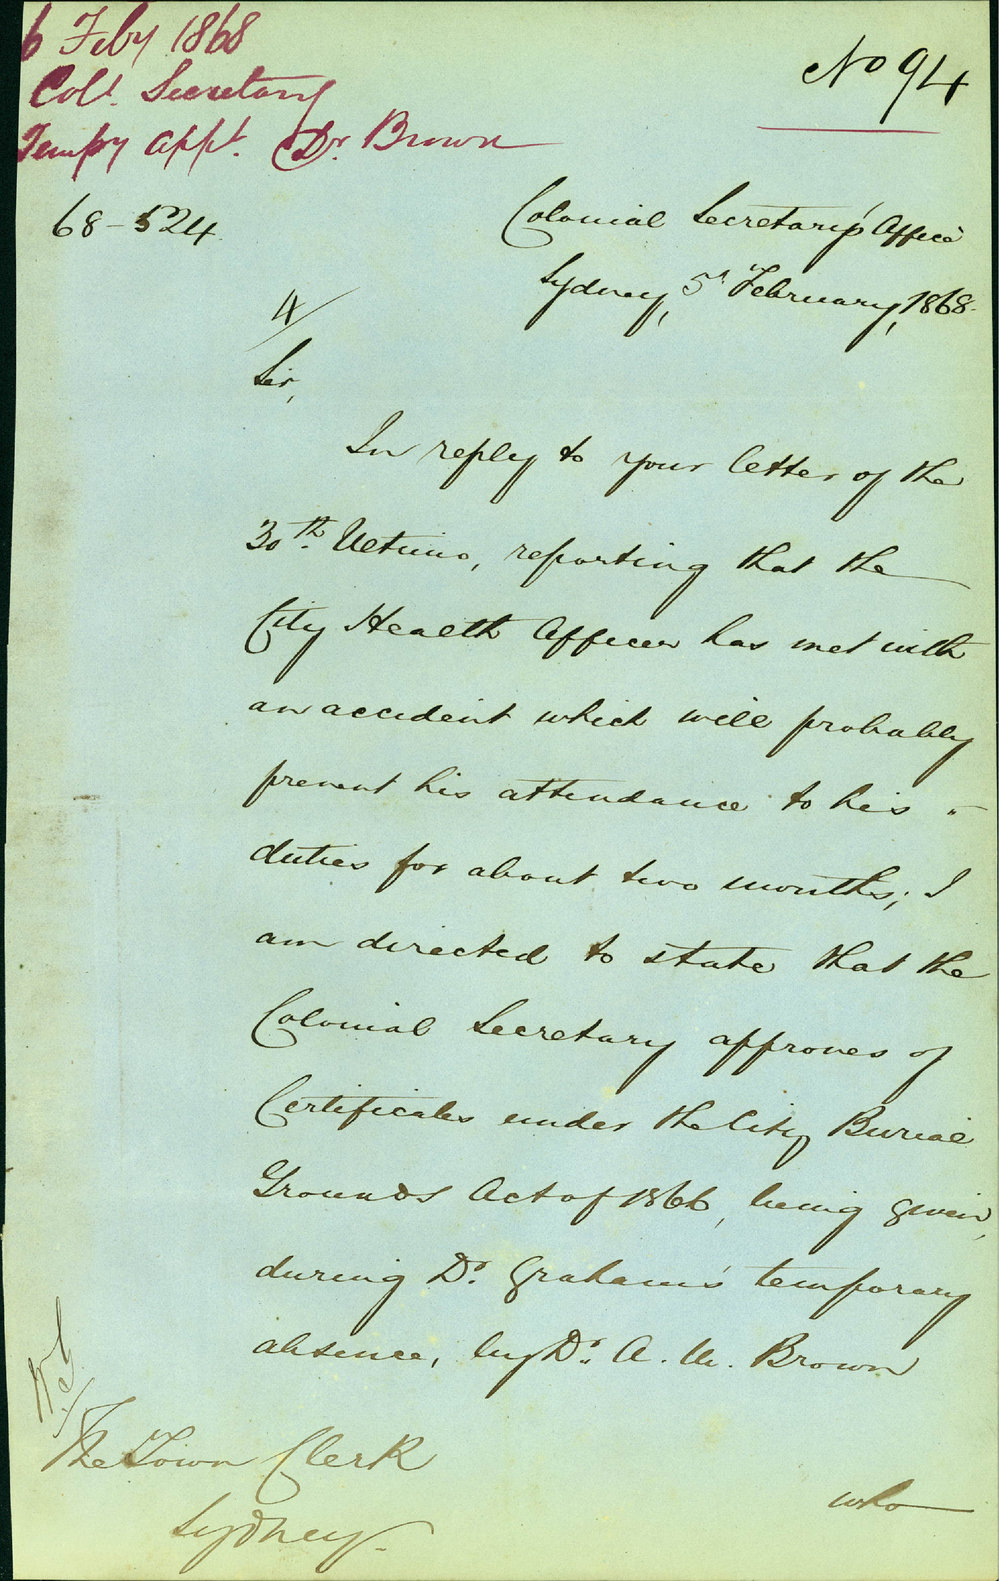 6 Feby 1868
Coll. Secretary
Tempy appt. Dr. Brown
No 94
68-524
Colonial Secretary's Office
Sydney, 5th February, 1868.
4/
Sir,
In reply to your letter of the
30th. Ultimo, reporting that the
City Health Officer has met with
an accident which will probably
prevent his attendance to his
duties for about two months; I
am directed to state that the
Colonial Secretary approves of
Certificates under the City Burial
Grounds Act of 1866, being given,
during Dr. Graham's temporary
absence, by Dr. A. M. Brown
The Town Clerk
Sydney.
who